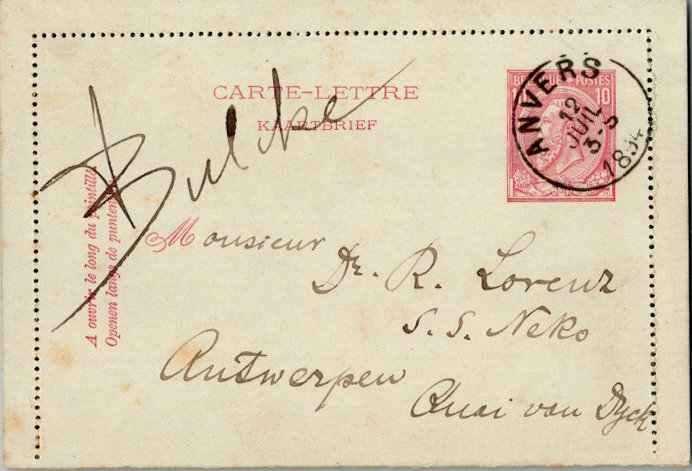 CARTE-LETTRE
KAARTBRIEF
BELGIQUE POSTES
10 10
ANVERS
12
JUIL
3-S
1894
A ouvrir le long du pointillé
Openen langs de puntenlijn
Monsieur
Dr. R. Lorenz
S. S. Neko
Antwerpen
Quai van Dyck